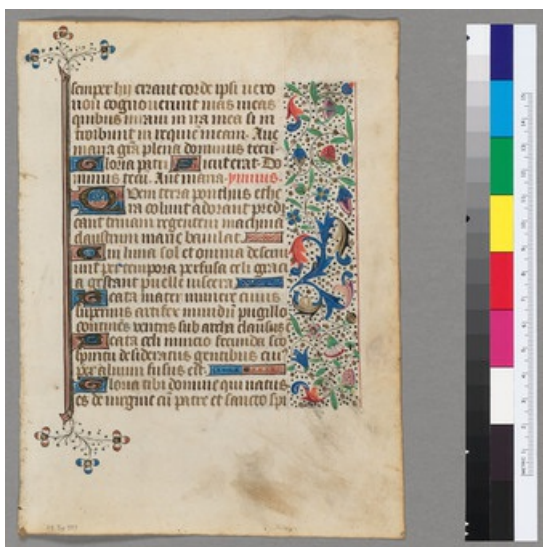 semper hii errant corde ipsi uero
non cognouerunt uias meas
quibus iuraui in ira mea si in
troibunt in requiē meam. Aue
maria grā plena dominus tecū
Gloria patri Sicut erat. Do
minus tecū. Aue maria. ymnus.
Quem terra ponthus ethe
ra colunt adorant predi
cant trinam regentem machinā
claustrum marie baiulat.
Cui luna sol et omnia deserui
unt per tempora perfusa celi graci
a gestant puelle uiscera
Beata mater munere cuius
supernus artifex mundū pugillo
continēs uentris sub archa clausus ē
Beata celi nuncio fecunda sco
spiritu desideratus gentibus cui9
per aluum fusus est.
Gloria tibi domine qui natus
es de uirgine cū patre et sancto spi